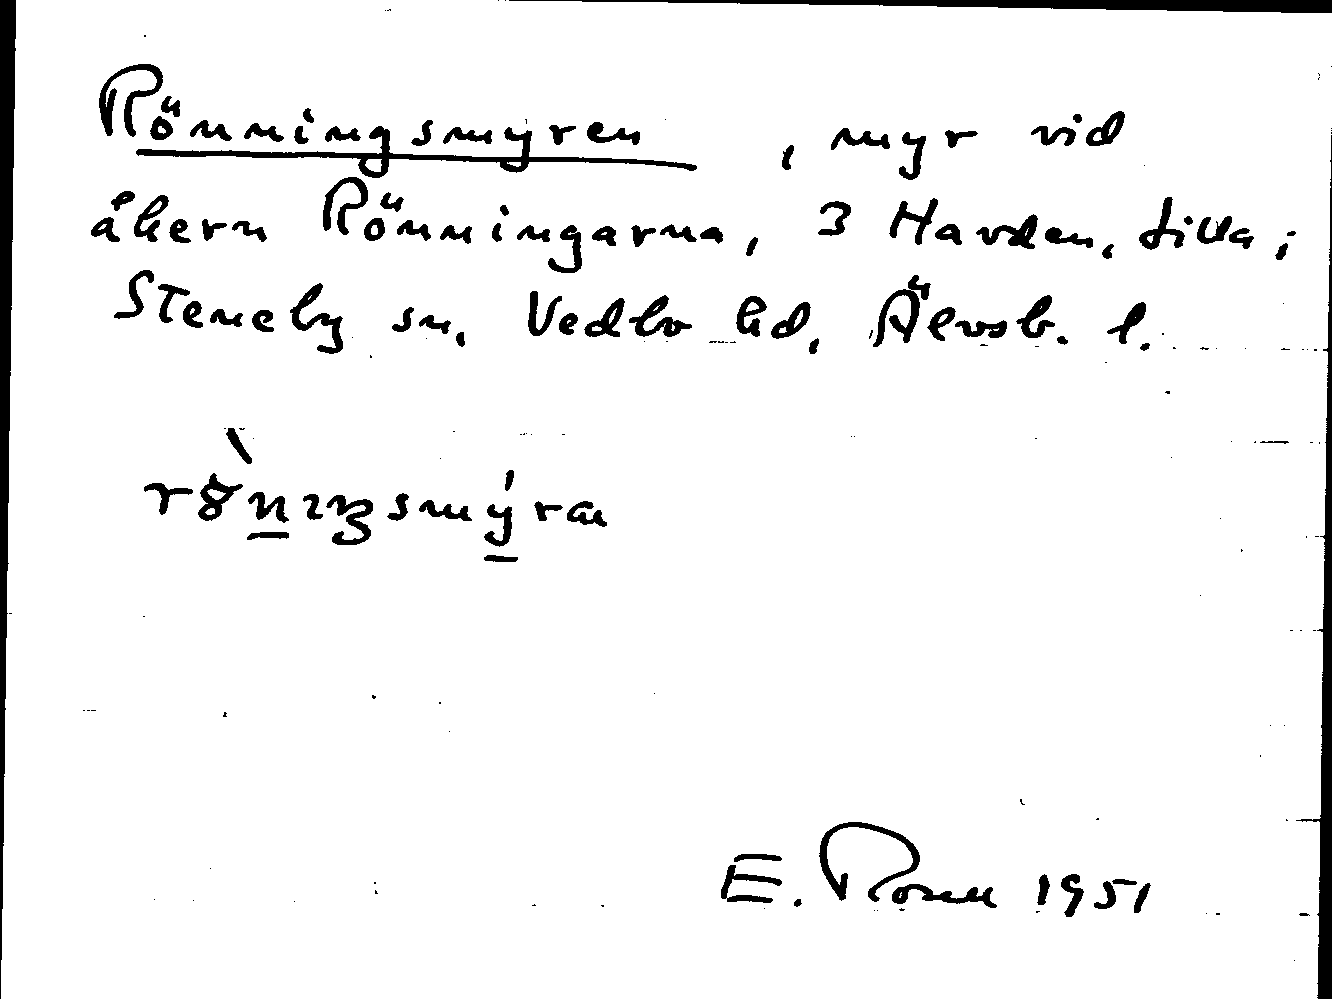 Rönningsmyren, myr vid
åkern Rönningarna, 3 Havden, Lilla i
Steneby sn, Vedbo hd, Älvsb. l.
E. Rosell 1951